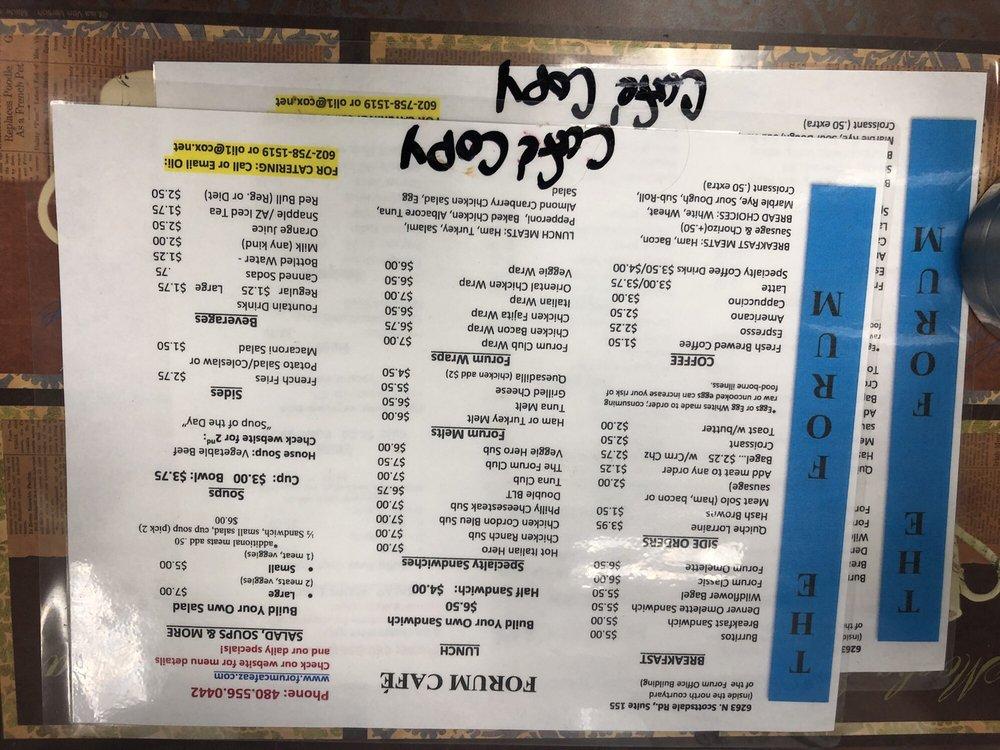 THE FORUM
6263 N. Scottsdale Rd., Suite 155
(inside the north courtyard
of the Forum Office Building)
BREAKFAST
Burritos $5.00
Breakfast Sandwich $5.00
Denver Omelette Sandwich $5.50
Wildflower Bagel $5.50
Forum Classic $6.00
Forum Omelette $6.50
SIDE ORDERS
Quiche Lorraine $3.95
Hash Browns $1.50
Meat Solo (ham, bacon or
sausage) $2.00
Add meat to any order $1.25
Bagel... $2.25 W/Crm Chz $2.75
Croissant $2.50
Toast w/butter $2.00
*Eggs or Egg Whites made to order, consuming
raw or uncooked eggs can increase your risk of
food-borne illness.
COFFEE
Fresh Brewed Coffee $1.50
Espresso $2.25
Americano $2.50
Cappuccino $3.00
Latte $3.00/$3.75
Specialty Coffee Drinks $3.50/$4.00
BREAKFAST MEATS: Ham, Bacon,
Sausage & Chorizo(+.50)
BREAD CHOICES: White, Wheat,
Marble Rye, Sour Dough, Sub-Roll,
Croissant (.50 extra)
FORUM CAFÉ
LUNCH
Build Your Own Sandwich
$6.50
Half Sandwich: $4.00
Specialty Sandwiches
Hot Italian Hero $7.00
Chicken Ranch Sub $7.00
Chicken Cordon Bleu Sub $7.00
Philly Cheesesteak Sub $7.00
Double BLT $6.75
Tuna Club $7.00
The Forum Club $7.50
Veggie Hero Sub $6.00
Forum Melts
Ham or Turkey Melt $6.00
Tuna Melt $6.50
Grilled Cheese $5.50
Quesadilla (chicken add $2) $4.50
Forum Wraps
Forum Club Wrap $7.00
Chicken Bacon Wrap $6.75
Chicken Fajita Wrap $6.50
Italian Wrap $7.00
Oriental Chicken Wrap $6.50
Veggie Wrap $6.00
LUNCH MEATS: Ham, Turkey, Salami,
Pepperoni, Baked Chicken, Albacore Tuna,
Almond Cranberry Chicken Salad, Egg
Salad
Café Copy
Phone: 480.556.0442
www.forumcafeaz.com
Check our website for menu details
and our daily specials!
SALAD, SOUPS & MORE
Build Your Own Salad
• Large $7.00
(2 meats, veggies)
• Small $5.00
(1 meat, veggies)
*additional meats add .50
½ Sandwich, small salad, cup soup (pick 2)
$6.00
Soups
Cup: $3.00 Bowl: $3.75
House Soup: Vegetable Beef
Check website for 2nd:
"Soup of the Day"
Sides
French Fries $2.75
Potato Salad/Coleslaw or
Macaroni Salad $1.50
Beverages
Fountain Drinks
Regular $1.25 Large $1.75
Canned Sodas .75
Bottled Water - $1.25
Milk (any kind) $2.00
Orange Juice $2.50
Snapple /AZ Iced Tea $1.75
Red Bull (Reg. or Diet) $2.50
FOR CATERING: Call or Email Oli:
602-758-1519 or oll1@cox.net
THE FORUM
Croissant (.50 extra)
Café Copy
602-758-1519 or oll1@cox.net
Replaces Poodle
As a French Pet